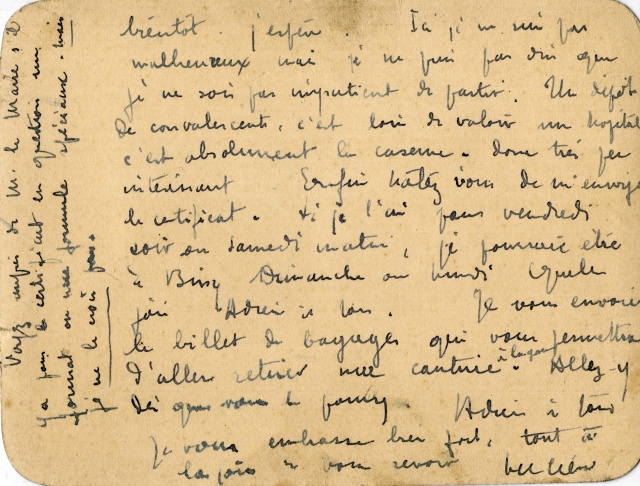 bientôt j'espère. Ici je ne suis pas
malheureux mais je ne puis pas dire que
je ne sois pas impatient de partir. Un dépôt
de convalescents, c'est loin de valoir un hôpital
c'est absolument la caserne. donc très peu
intéressant Enfin hâtez vous de m'envoyer
le certificat. Si je l'ai pour vendredi
soir ou samedi matin, je pourrais être
à Dimanche ou lundi Quelle
joie Adieu à tous. Je vous envoie
le billet de bagages qui vous permettra
d'aller retirer ma cantine à la gare. Allez-y
dès que vous le pourrez. Adieu à tous
Je vous embrasse bien fort, tout à
la joie de vous revoir
Voyez enfin de M. le Maire s'il
y a pour le certificat en question un
format ou une formule spéciaux. mais
je ne le crois pas.